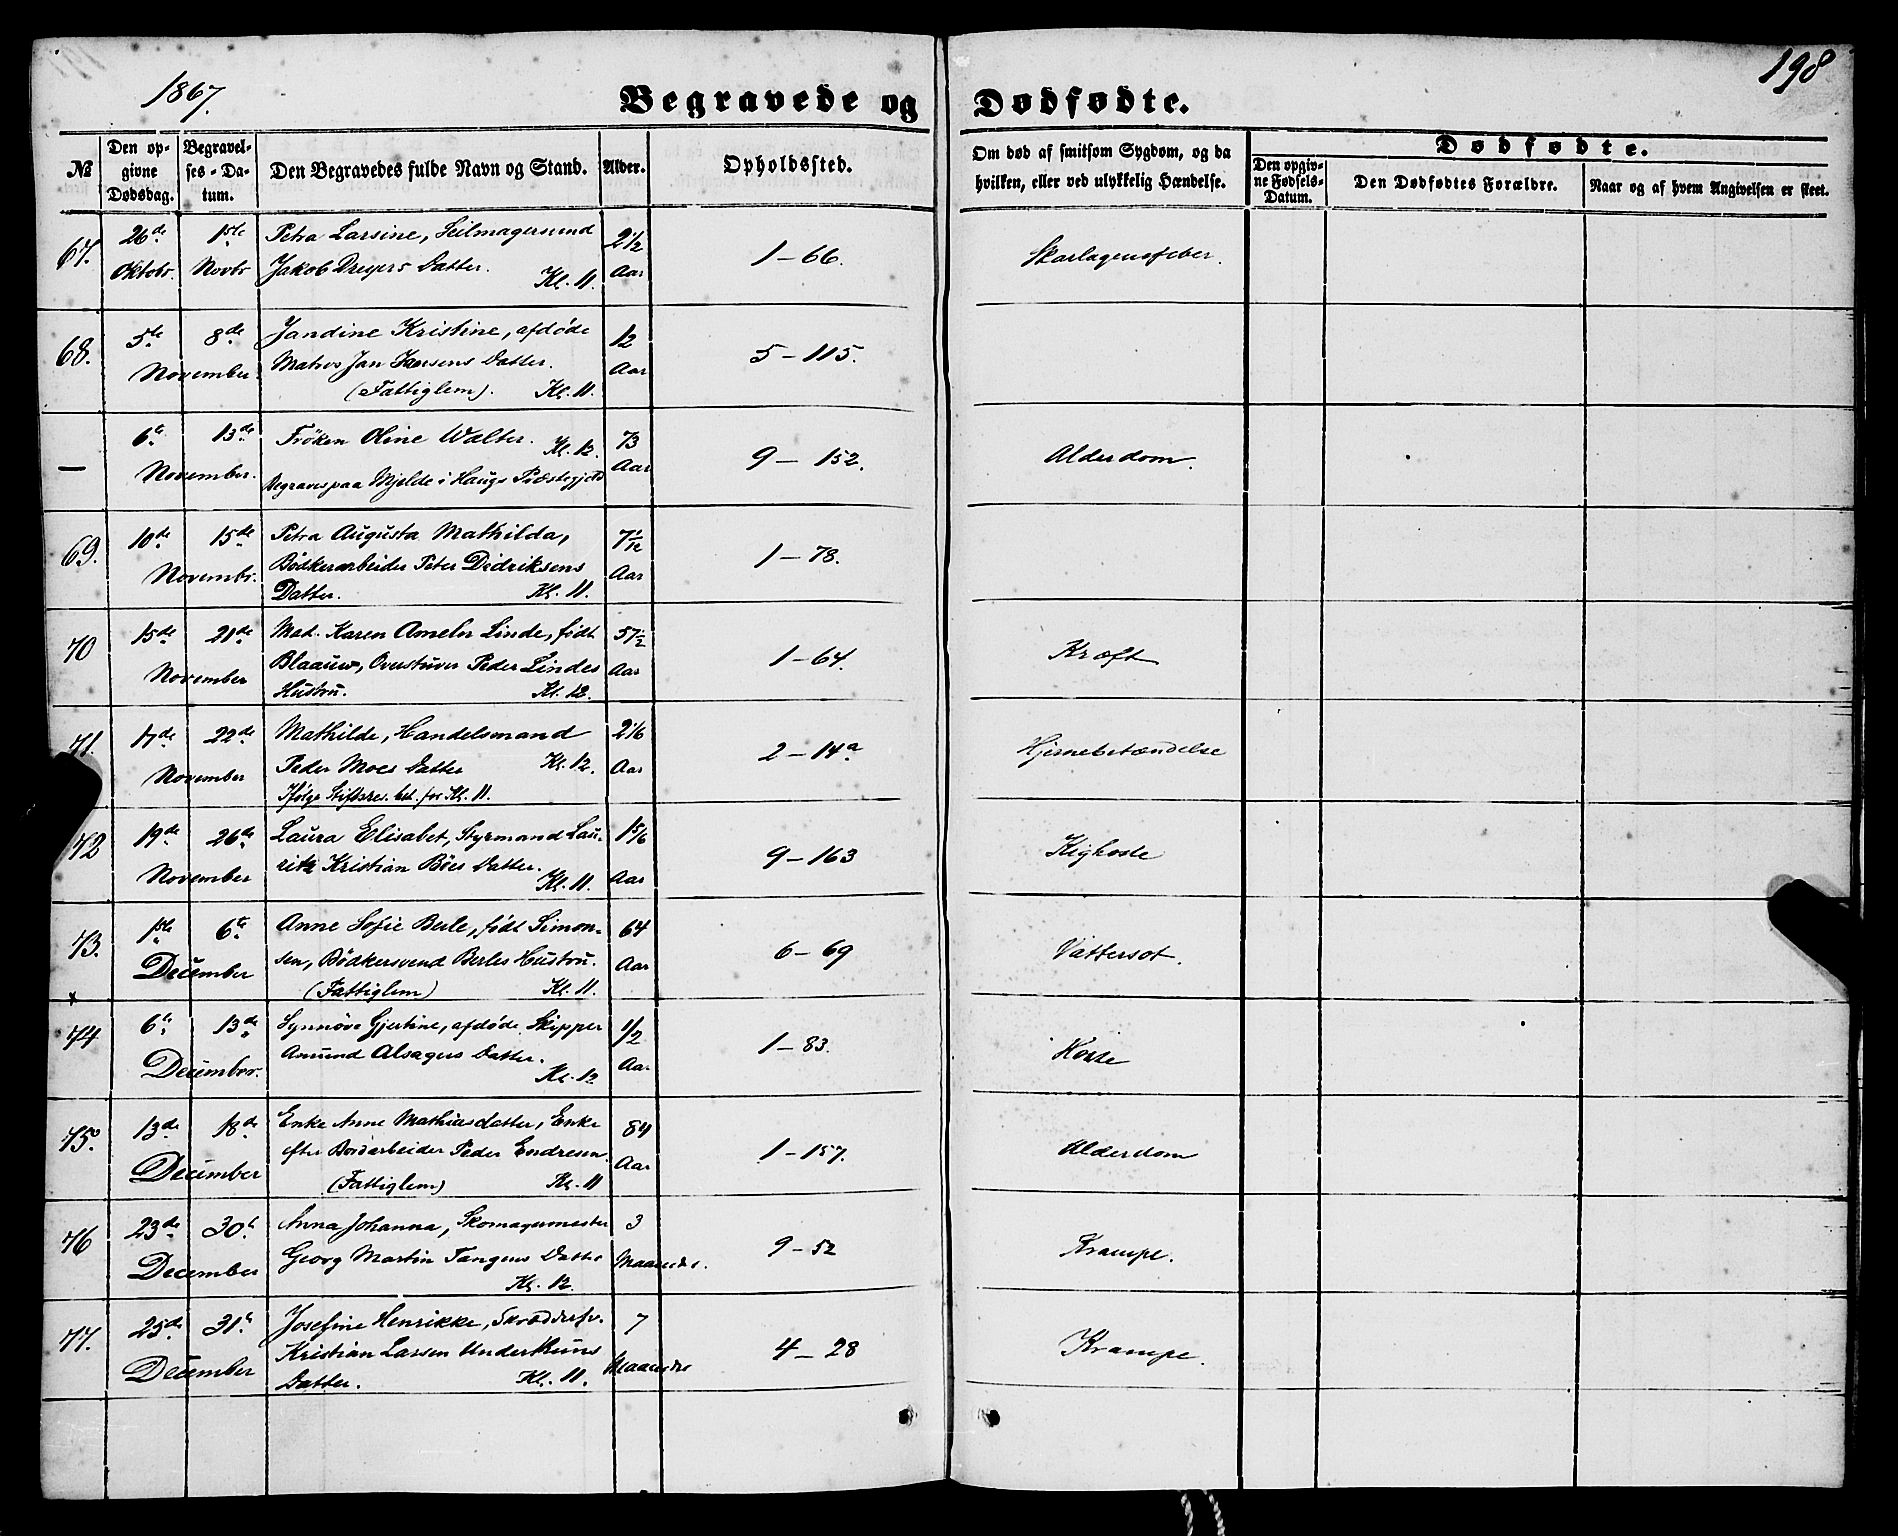 1867.
198
Begravede og Dødfødte.
№
Den opgivne Dødsdag.
Begravelses-Datum.
Den Begravedes fulde Navn og Stand.
Alder.
Opholdssted.
Om død af smitsom Sygdom, og da hvilken, eller ved ulykkelig Hændelse.
Dødfødte.
Den opgivne Fødsels-Datum.
Den Dødfødtes Forældre.
Naar og af hvem Angivelsen er skeet.
67. 26de Oktobr. 1ste Novbr Petra Larsine, Seilmagersvend 2½ Aar 1-66. Skarlagensfeber.
Jakob Dreyers Datter. Kl. 11.
68. 5te 8de November. Jandine Kristine, afdøde 12 Aar 5-115.
Matros Jan Datter.
(Fattiglem). Kl. 11.
— 6te 13de November. Frøken Oline Walter. Kl. 12. 73 Aar 9-152. Alderdom.
Begraves paa Mjelde i Haugs Præstegjeld
69. 10de 15de Novembr. Petra Augusta Mathilda, 7 1/12 Aar 1-78.
Bødkerarbeider Peter Didriksens
Datter. Kl. 11.
70 15de 21de November Mad. Karen Linde, født 57½ Aar 1-64. Kræft
Blaauw, Peder Lindes
Hustru. Kl. 12.
71. 17de 22de November Mathilde, Handelsmand 2 1/6 Aar 2-14a Hjernebetændelse
Peder Moes Datter Kl. 12.
Ifølge Stiftsres. bet. for Kl. 11.
72 19de 26de November Laura Elisabet, Styrmand Lau- 1 5/6 Aar 9-163 Kighoste
ritz Kristian Bøes Datter. Kl. 11.
73. 1ste 6te December Anne Sofie Berle, født Simon- 64 Aar 6-69 Vattersot.
sen, Bødkersvend Berles Hustru.
(Fattiglem) Kl. 11.
x
74 6te 13de December. Synnøve Gjertine, afdøde Skipper 1/2 Aar 1-83. Hoste
Amund Alsagers Datter.
Kl. 12
75. 13de 18de December Enke Anne Mathiasdatter, Enke 84 Aar 1-157. Alderdom
efter Peder Endresen.
(Fattiglem) Kl. 11
76 23de 30te December Anna Johanna, Skomagermester 3 Maaneder. 9-52 Krampe.
Georg Martin Tangens Datter
Kl. 12.
77. 25de 31te December Josefine Henrikke, Skræddersv. 7 Maaneder 4-28 Krampe.
Kristian Larsen Underthuns
Datter. Kl. 11.